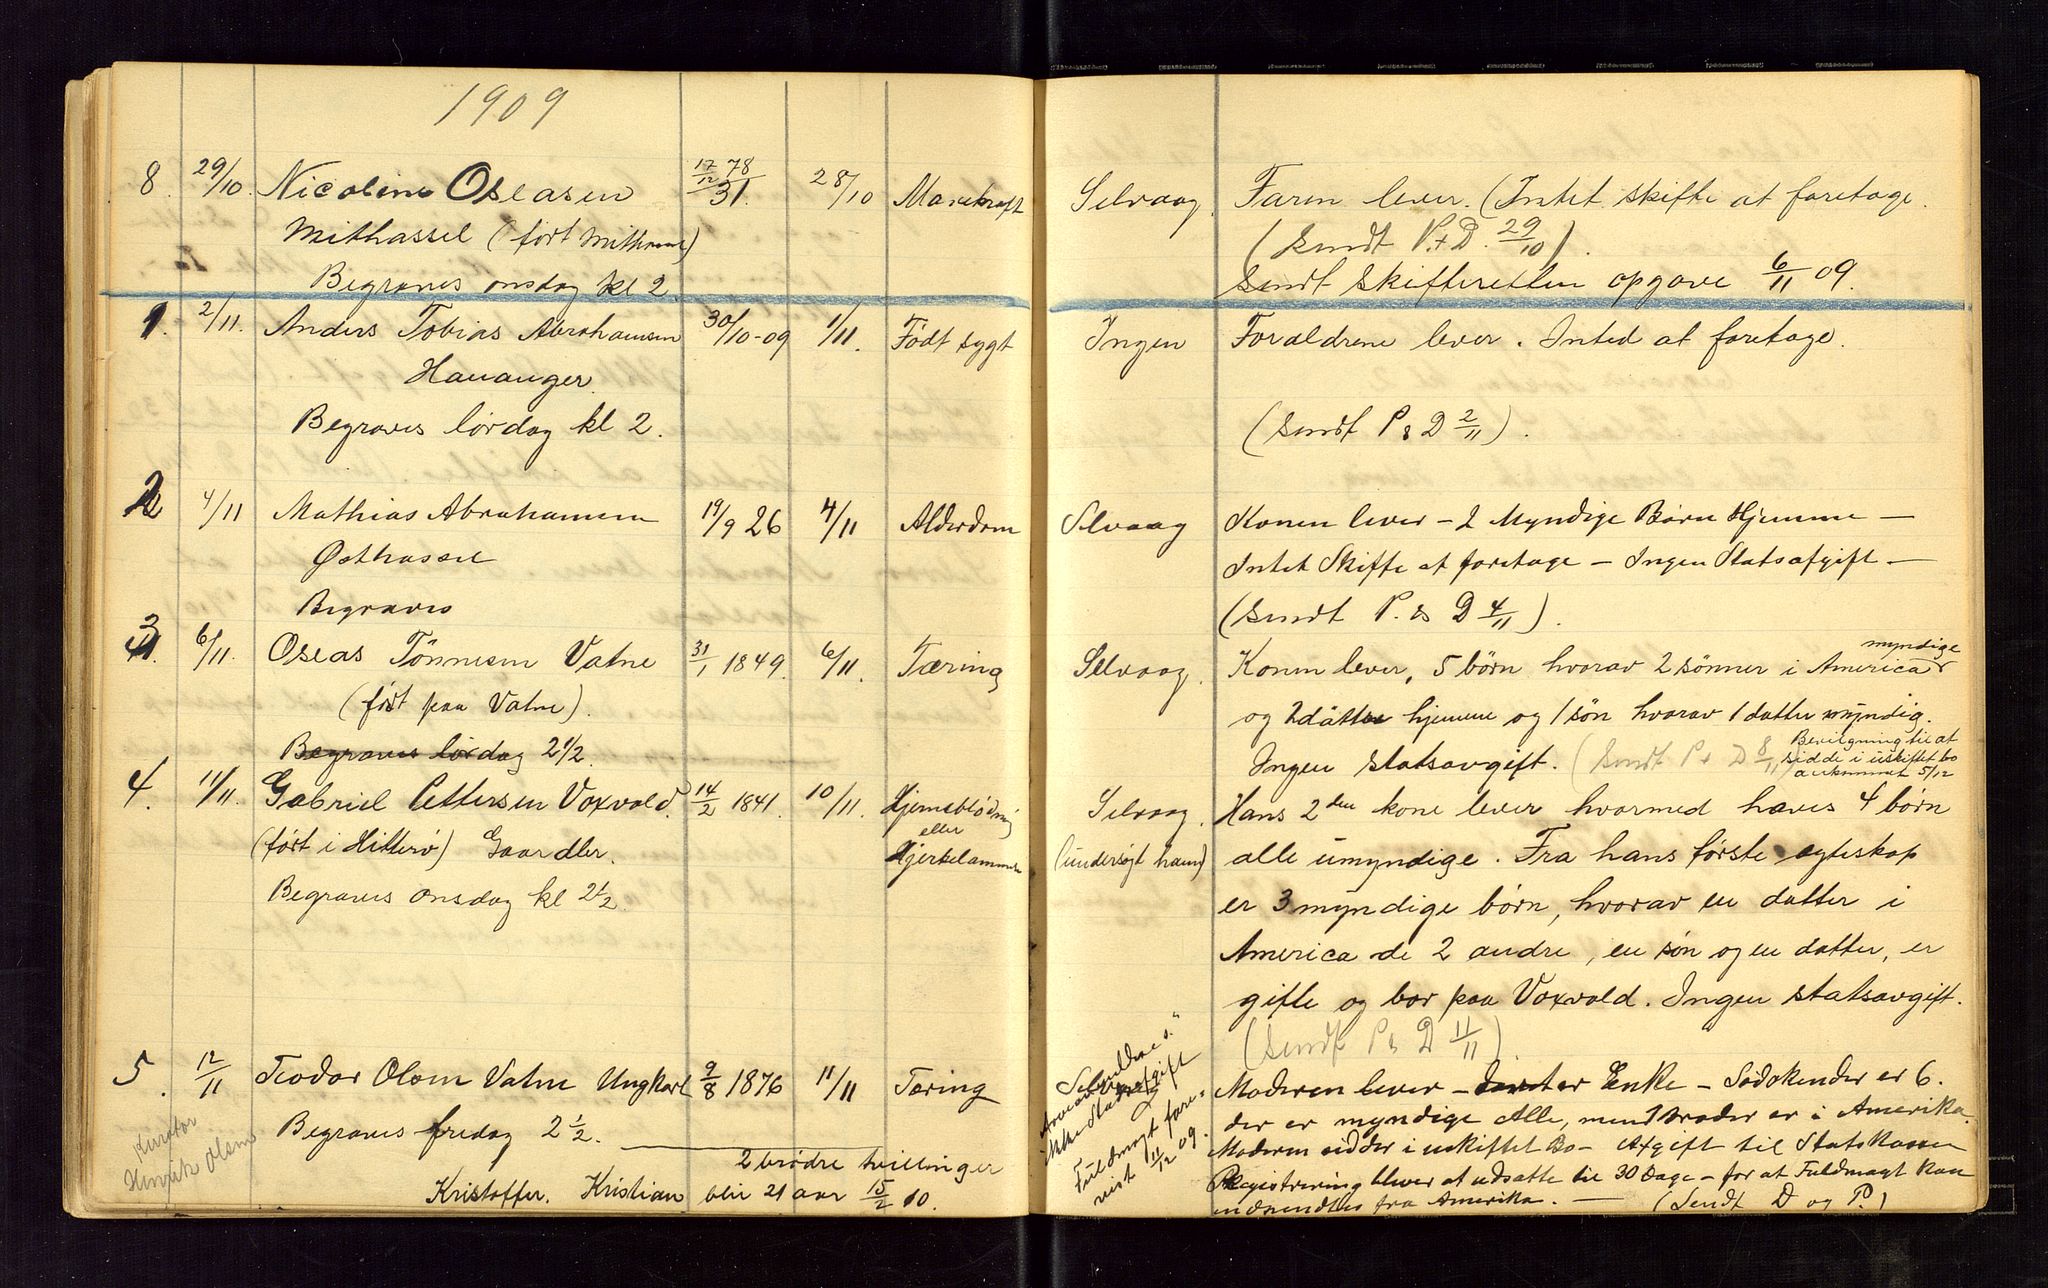 1909
8. 29/10. Nicoline Oseasen 17/12 78 31. 28/10 Mavekræft Selvaag. Faren lever. (Intet skifte at foretage.
Mithassel (født Mithassel) (sendt P. + D. 29/10).
Begraves onsdag kl 2. Sendt Skifteretten opgave 6/11 09.
1. 2/11. Anders Tobias Abrahamsen 30/10-09 1/11. Født sygt Ingen Forældrene lever. Inted at foretage.
Hananger.
Begraves lördag kl 2. (sendt P & D 2/11).
2 4/11 Mathias Abrahamsen 19/9 26 4/11 Alderdom Selvaag Konen lever – 2 Myndige Børn Hjemme –
Østhassel Intet Skifte at foretage – Ingen Statsafgift –
Begraves (sendt P. & D 4/11).
3 6/11. Oseas Tönnesen Vatne 31/1 1849. 6/11. Tæring Selvaag. Konen lever, 5 börn hvorav 2 sönner i America myndige
(født paa Vatne). og 2 døttre hjemme og 1 sön hvorav 1 datter myndig.
Begraves lördag 2 1/2. Ingen statsavgift. (sendt P + D 8/11) Bevilgning til at
sidde i uskiftet bo
ankommet 5/12
4. 11/11. Gabriel Pettersen Voxvold. 14/2 1841. 10/11. Hjerneblödning Selvaag. Hans 2den kone lever hvormed haves 4 börn
eller
(født i Hitterö) Gaardbr. Hjertelammelse (undersögt ham) alle umyndige. Fra hans første egteskap
Begraves onsdag kl 2 1/2. er 3 myndige börn, hvorav en datter i
America de 2 andre, en søn og en datter, er
gifte og bor paa Voxvold. Ingen statsavgift.
(sendt P & D 11/11).
5. 12/11 Teodor Olsen Vatne Ungkarl 9/8 1876 11/11 Tæring Selvaag Moderen lever – er Enke – Sødskender er 6.
Begraves fredag 2 1/2. der er myndige Alle, men 1 broder er i Amerika.
Kurator
Henrik Olsen
ikke
Fuldmagt fore=
vist 11/12 09.
Moderen sidder i uskiftet Bo – Afgift til Statskassen
2 brødre tvillinger Registrering bliver at udsætte til 30 Dage – for at Fuldmagt kan
Kristoffer. Kristian blir 21 aar 15/2 10. indsendtes fra Amerika. – (Sendt D og P.)